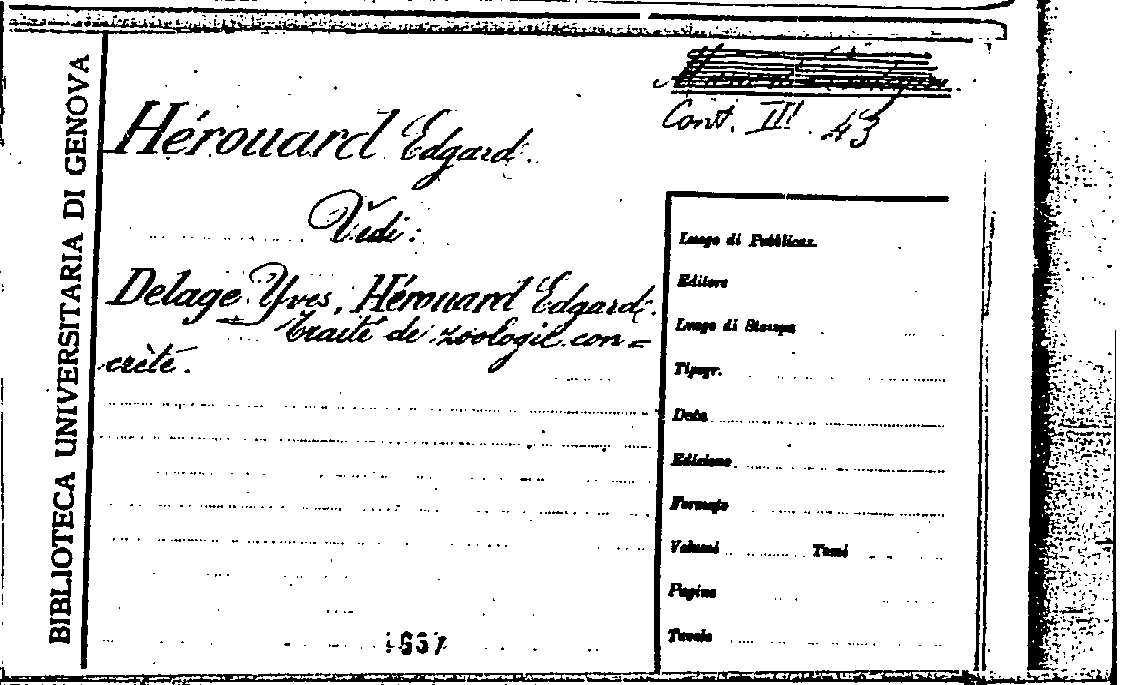 BIBLIOTECA UNIVERSITARIA DI GENOVA
Cont. III. 43
Hérouard Edgard.
Vedi:
Delage Yves, Hérouard Edgard.
Traité de zoologie con=
crète.
Luogo di Pubblicaz.
Editore
Luogo di Stampa
Tipogr.
Data
Edizione
Formato
Volumi Tomi
Pagine
Tavole